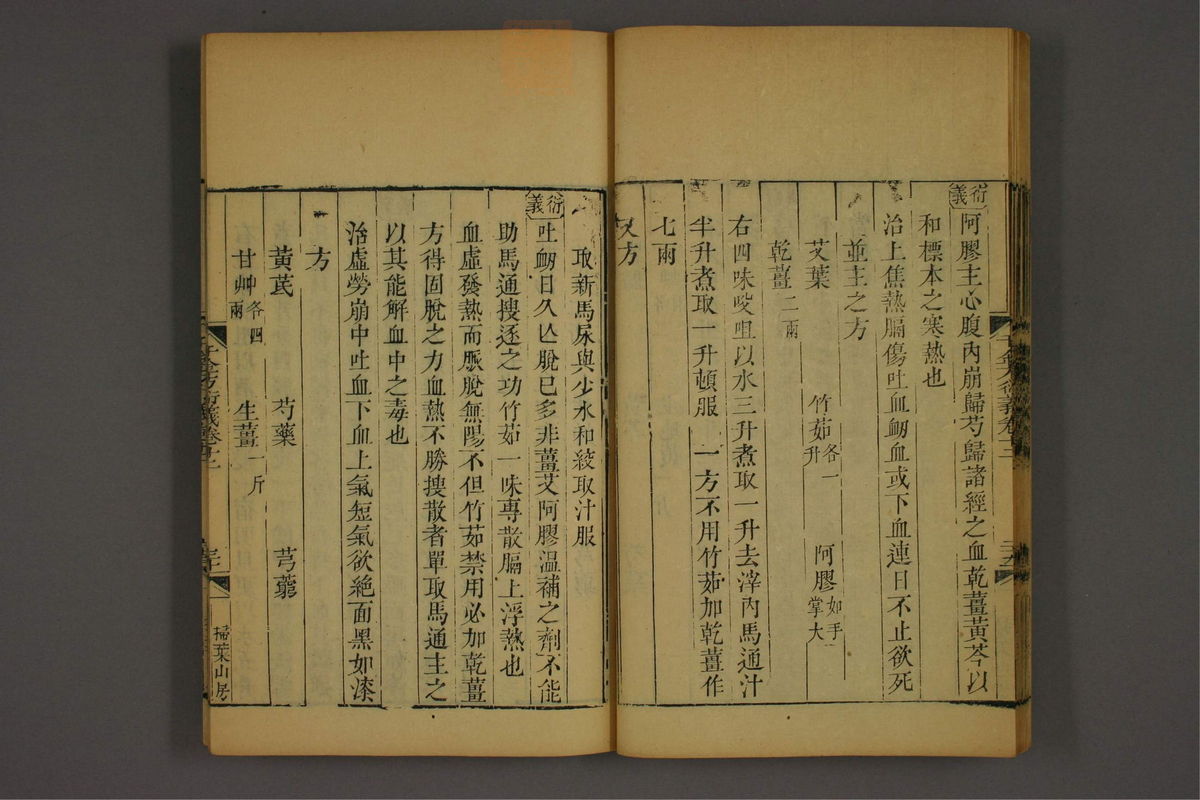 衍義 阿膠主心腹內崩歸芍歸諸經之血乾薑黃芩以
和標本之寒熱也
治上焦熱膈傷吐血衂血或下血連日不止欲死
並主之方
艾葉 竹茹各一升 阿膠如手掌大
乾薑二兩
右四味㕮咀以水三升煮取一升去滓內馬通汁
半升煮取一升頓服 一方不用竹茹加乾薑作
七兩
又方
取新馬尿與少水和絞取汁服
衍義 吐衂日久亾脫已多非薑艾阿膠溫補之劑不能
助馬通搜逐之功竹茹一味專散膈上浮熱也
血虛發熱而脈脫無陽不但竹茹禁用必加乾薑
方得固脫之力血熱不勝搜散者單取馬通主之
以其能解血中之毒也
治虛勞崩中吐血下血上氣短氣欲絕面黑如漆
方
黃芪 芍藥 芎藭
甘艸各四兩 生薑一斤
千金方衍義卷十二
掃葉山房